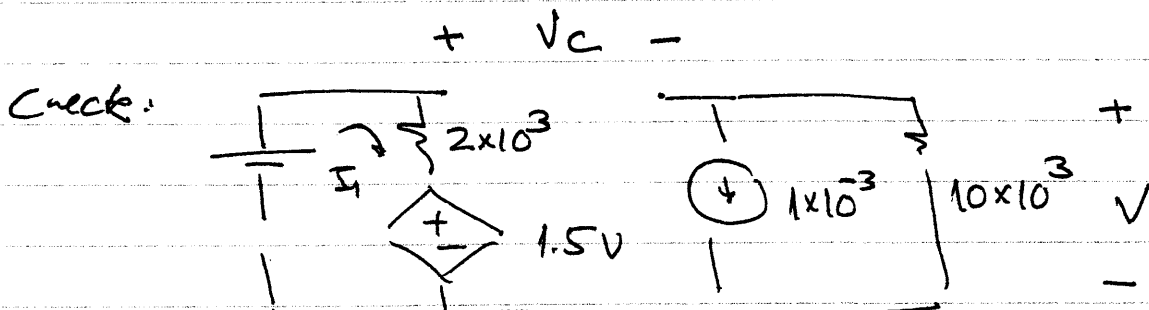 + Vc -
Check:
I₁
2×10³
+
-
1.5V
1×10⁻³
10×10³
+
V
-